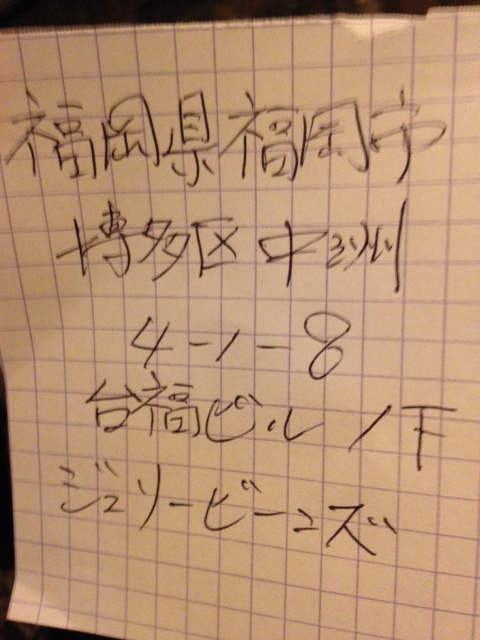 福岡県福岡市
博多区中洲
4-1-8
台福ビル 1F
ジェリービーンズ